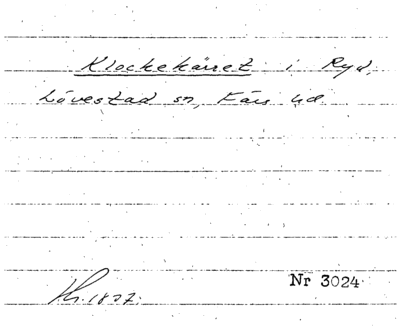 Klockekärret i Ryd,
Lövestad sn, Färs hd
Nr 3024
Kr. 1827.